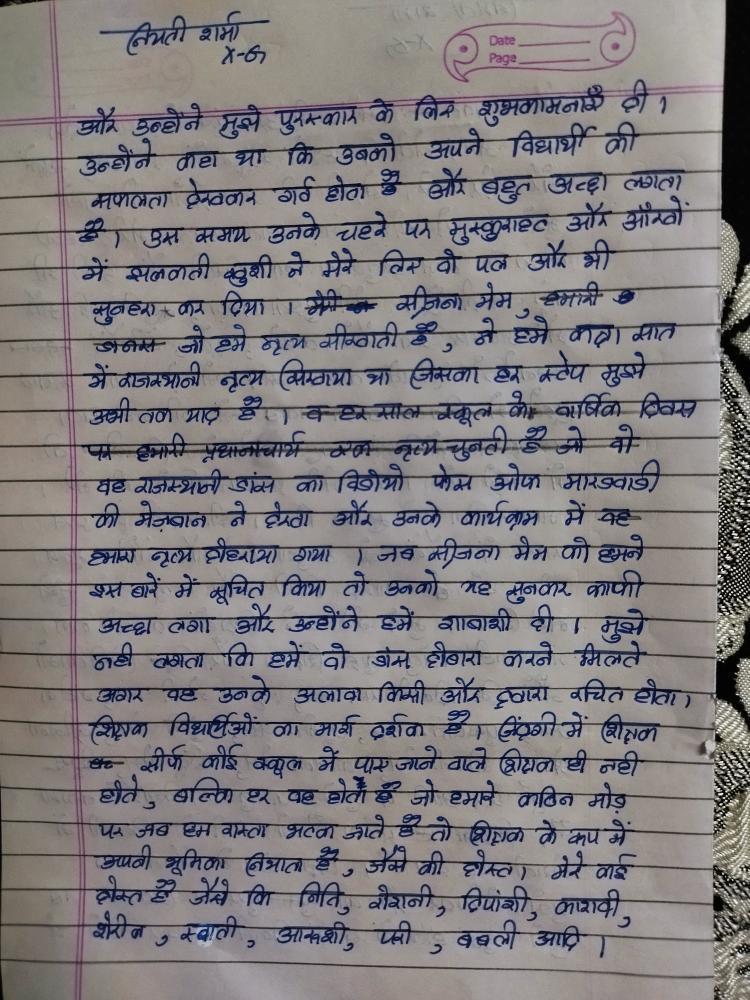 नियती शर्मा
X-G
Date
Page
और उन्होंने मुझे पुरस्कार के लिए शुभकामनाएँ दी ।
उन्होंने कहा था कि उनको अपने विद्यार्थी की
सफलता देखकर गर्व होता है और बहुत अच्छा लगता
है । उस समय उनके चहरे पर मुस्कुराहट और आँखों
में झलकती खुशी ने मेरे लिए वो पल और भी
सुनहरा कर दिया । मेरी सीजना मेम, हमारी
जो हमे नृत्य सीखाती है, ने हमे कक्षा सात
में राजस्थानी नृत्य सिखाया था जिसका हर स्टेप मुझे
अभी तक याद है । व हर साल स्कूल के वार्षिक दिवस
पर हमारी प्रधानाचार्य एक नृत्य चुनती है जो वो
वह राजस्थानी डांस का विडीयो फेस ओफ मारडवाडी
की मेज़बान ने देखा और उनके कार्यक्रम में यह
हमारा नृत्य दोहराया गया । जब सीजना मेम को हमने
इस बारें में सूचित किया तो उनको यह सुनकर काफी
अच्छा लगा और उन्होंने हमें शाबाशी दी । मुझे
नही लगता कि हमें वो डांस दोबारा करने मिलते
अगर वह उनके अलावा किसी और द्वारा रचित होता ।
शिक्षक विद्यार्थिओं का मार्ग दर्शक है । जिंदगी में शिक्षक
सीर्फ कोई स्कूल में पाए जाने वाले शिक्षक ही नही
होते, बल्कि हर वह होता है जो हमारे कठिन मोड़
पर जब हम रास्ता भटक जाते है तो शिक्षक के रूप में
अपनी भूमिका निभाता है, जैसे की दोस्त । मेरे कई
दोस्त है जैसे कि निति, रोशनी, दिपांशी, कारावी,
शेरीन, स्वाती, आरुशी, परी, बबली आदि ।